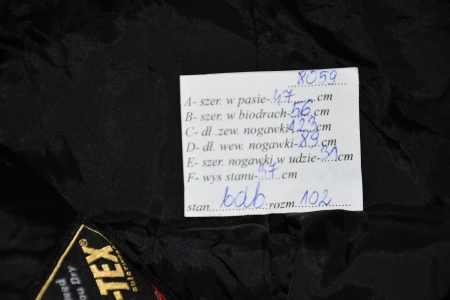 8059
A- szer. w pasie-47.....cm
B- szer. w biodrach-56.cm
C- dł .zew. nogawki-123...cm
D- dł. wew. nogawki-89.cm
E- szer. nogawki w udzie-31cm
F- wys stanu-37...cm
stan bdb rozm 102
-TEX®
You Dry